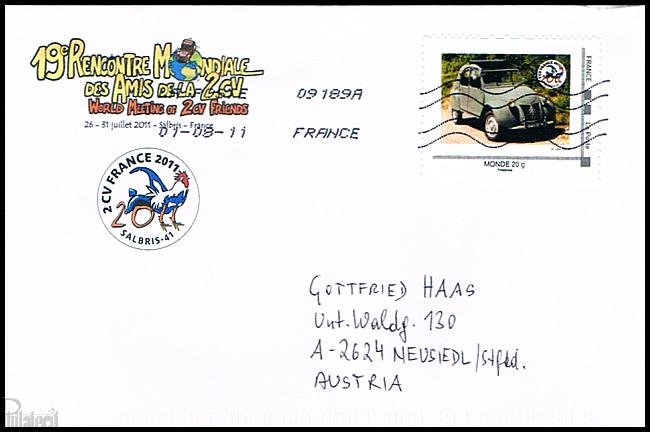 19e RENCONTRE MONDIALE
DES AMIS DE LA 2CV
WORLD MEETING OF 2CV FRIENDS
26 - 31 juillet 2011 - Salbris - France
01-08-11
09189A
FRANCE
FRANCE
LA POSTE
MONDE 20 g
2 CV FRANCE 2011
2011
SALBRIS-41
GOTTFRIED HAAS
Unt. Waldg. 130
A-2624 NEUSIEDL/Stfld.
AUSTRIA
Philatecil